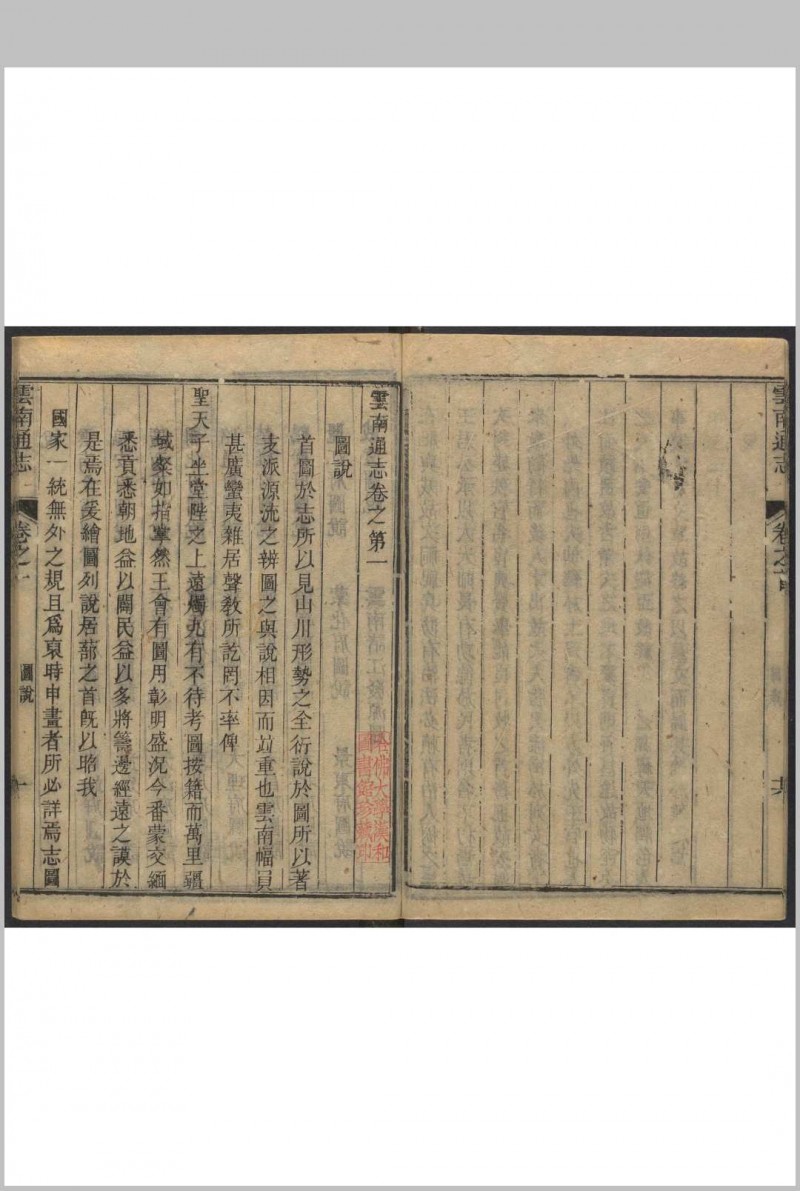 雲南通志
雲南通志卷之第一
圖說
首圖於志所以見山川形勢之全衍說於圖所以著
支派源流之辨圖之與說相因而竝重也雲南幅員
甚廣蠻夷雜居聲敎所訖罔不率俾
聖天子坐堂陛之上遠燭九有不待考圖按籍而萬里疆
域粲如指掌然王會有圖用彰明盛況今番蒙交緬
悉貢悉朝地益以闢民益以多將籌邊經遠之謨於
是焉在爰繪圖列說居部之首旣以昭我
國家一統無外之規且爲裒時申畫者所必詳焉志圖
雲南通志
卷之一
圖說
一
哈佛大學漢和
圖書館珍藏印